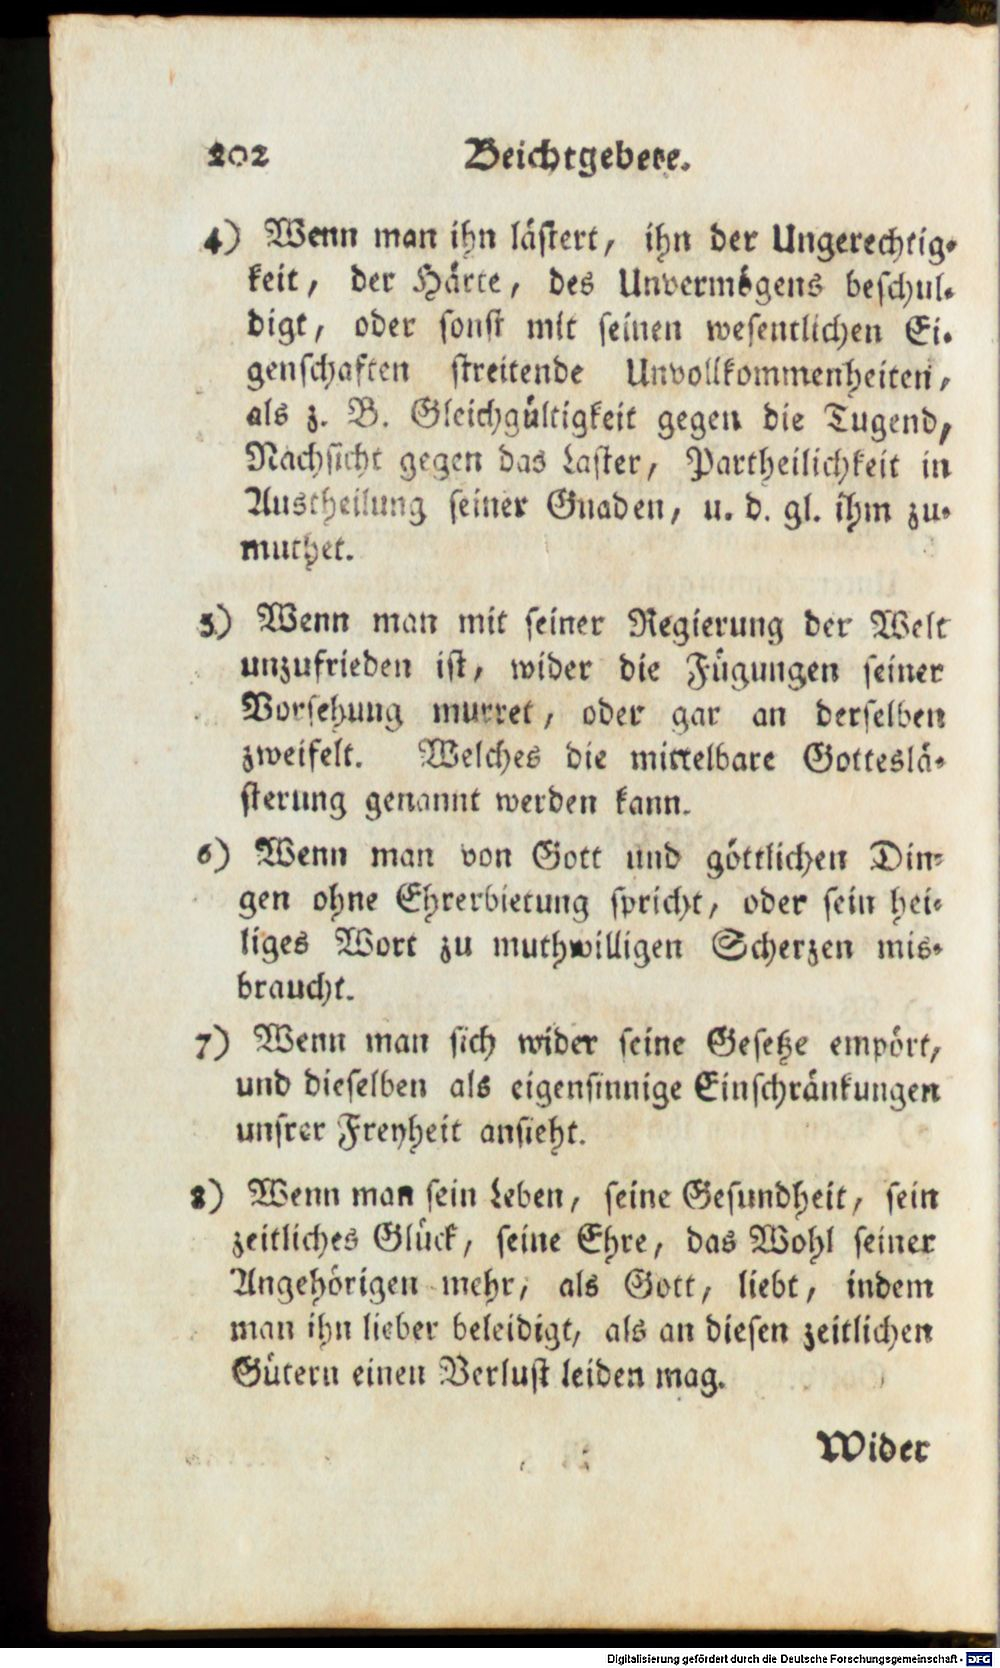 202 Beichtgebete.
4) Wenn man ihn lästert, ihn der Ungerechtig-
keit, der Härte, des Unvermögens beschul-
digt, oder sonst mit seinen wesentlichen Ei-
genschaften streitende Unvollkommenheiten,
als z. B. Gleichgültigkeit gegen die Tugend,
Nachsicht gegen das Laster, Partheilichkeit in
Austheilung seiner Gnaden, u. d. gl. ihm zu-
muthet.
5) Wenn man mit seiner Regierung der Welt
unzufrieden ist, wider die Fügungen seiner
Vorsehung murret, oder gar an derselben
zweifelt. Welches die mittelbare Gotteslä-
sterung genannt werden kann.
6) Wenn man von Gott und göttlichen Din-
gen ohne Ehrerbietung spricht, oder sein hei-
liges Wort zu muthwilligen Scherzen mis-
braucht.
7) Wenn man sich wider seine Gesetze empört,
und dieselben als eigensinnige Einschränkungen
unsrer Freyheit ansieht.
8) Wenn man sein Leben, seine Gesundheit, sein
zeitliches Glück, seine Ehre, das Wohl seiner
Angehörigen mehr, als Gott, liebt, indem
man ihn lieber beleidigt, als an diesen zeitlichen
Gütern einen Verlust leiden mag.
Wider
Digitalisierung gefördert durch die Deutsche Forschungsgemeinschaft - DFG